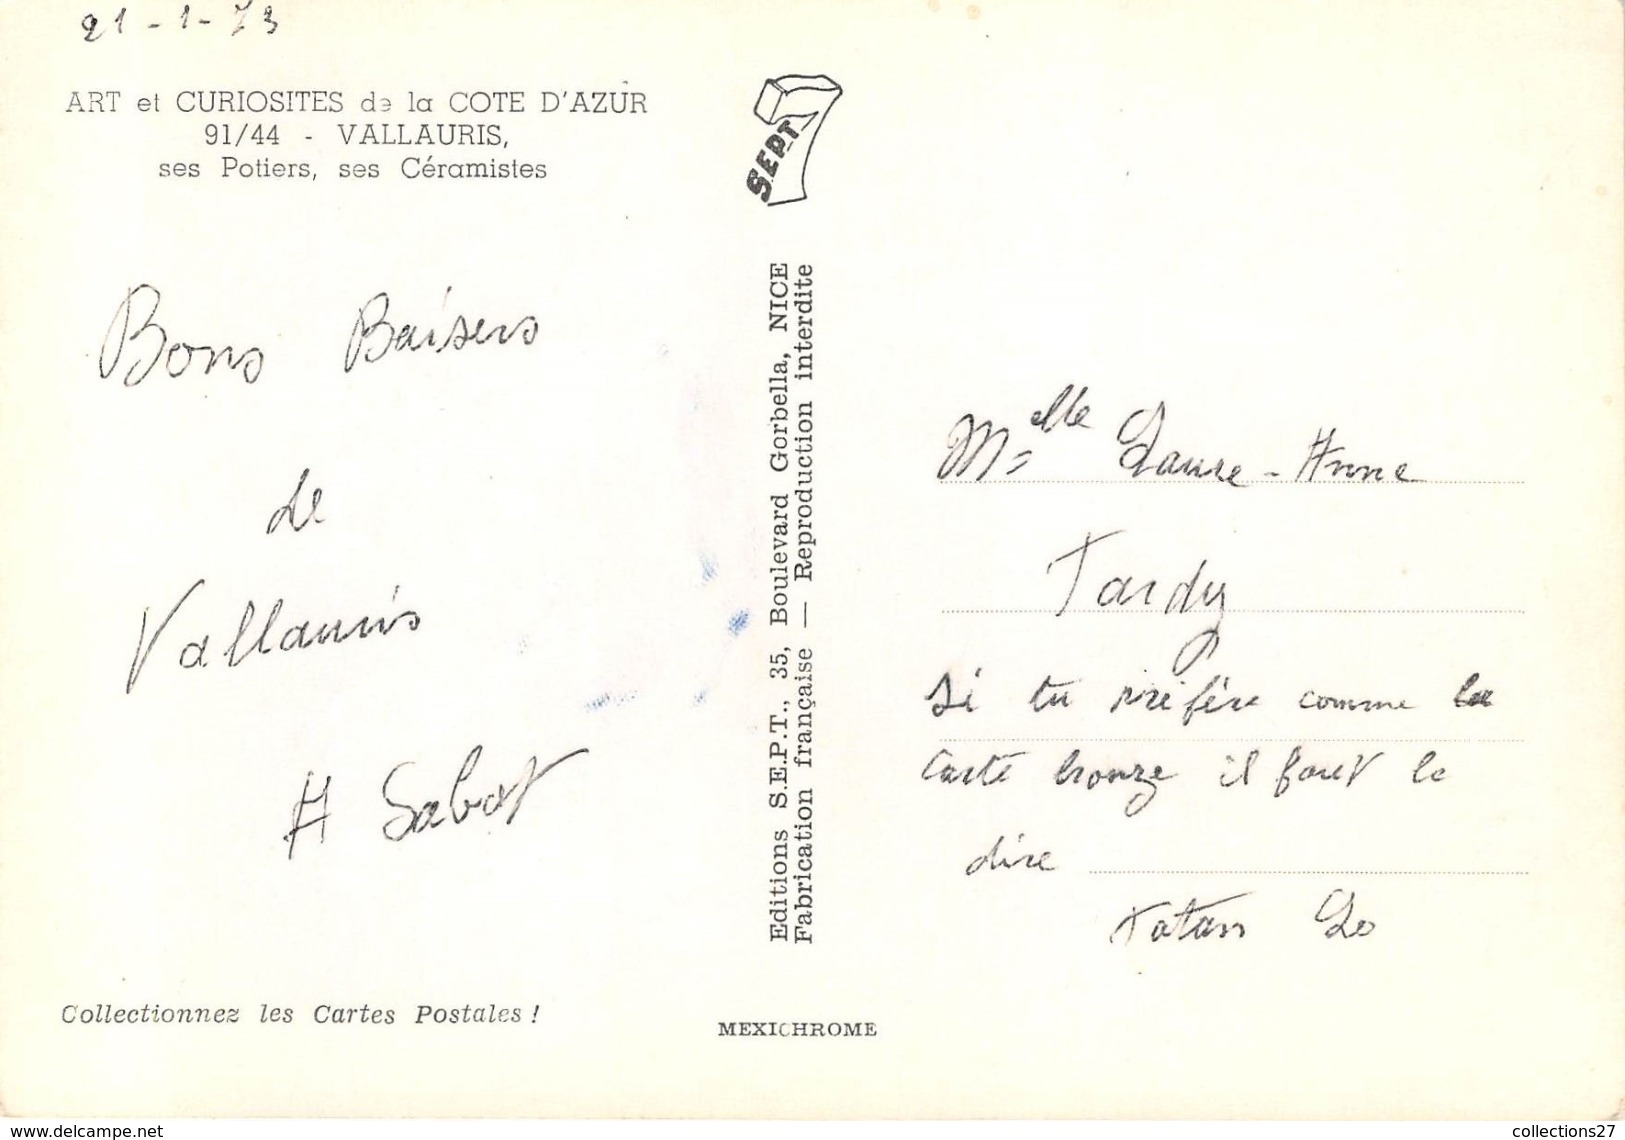 21-1-73
ART et CURIOSITES de la COTE D'AZUR
91/44 - VALLAURIS,
ses Potiers, ses Céramistes
Bons Baisers
de
Vallauris
A Sabot
Collectionnez les Cartes Postales !
SEPT
Editions S.E.P.T., 35, Boulevard Gorbella, NICE
Fabrication française — Reproduction interdite
MEXICHROME
Melle Laure-Anne
Tardy
si tu préfère comme la
carte bronze il faut le
dire
Tatan Lo
delcampe.net
collections27